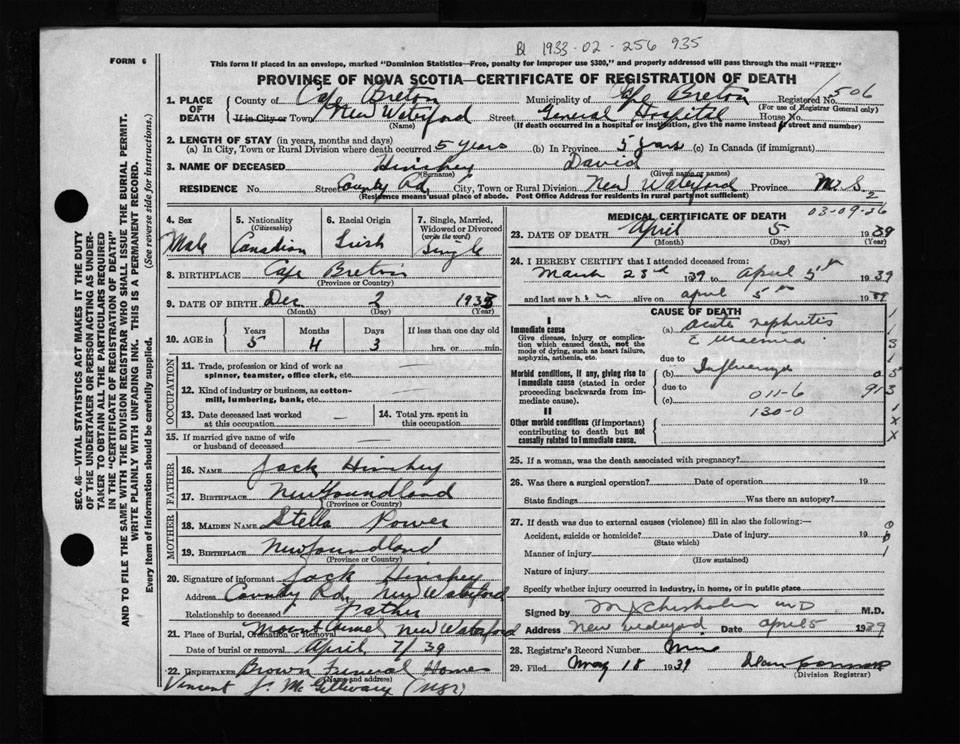 Bl 1933-02-256 935
FORM 6
This form if placed in an envelope, marked "Dominion Statistics—Free, penalty for improper use $300," and properly addressed will pass through the mail "FREE"
PROVINCE OF NOVA SCOTIA—CERTIFICATE OF REGISTRATION OF DEATH
SEC. 46—VITAL STATISTICS ACT MAKES IT THE DUTY
OF THE UNDERTAKER OR PERSON ACTING AS UNDER-
TAKER TO OBTAIN ALL THE PARTICULARS REQUIRED
IN THE "CERTIFICATE OF REGISTRATION OF DEATH"
AND TO FILE THE SAME WITH THE DIVISION REGISTRAR WHO SHALL ISSUE THE BURIAL PERMIT.
WRITE PLAINLY WITH UNFADING INK. THIS IS A PERMANENT RECORD.
Every item of information should be carefully supplied. (See reverse side for instructions.)
1. PLACE OF DEATH County of Cape Breton Municipality of Cape Breton Registered No. 506
(For use of Registrar General only)
If in City or Town New Waterford Street General Hospital House No.
(Name) (If death occurred in a hospital or institution, give the name instead of street and number)
2. LENGTH OF STAY (in years, months and days)
(a) In City, Town or Rural Division where death occurred 5 years (b) In Province 5 years (c) In Canada (if immigrant)
3. NAME OF DECEASED Hinchey David
(Surname) (Given name or names)
RESIDENCE No. Street County Rd. City, Town or Rural Division New Waterford Province N.S.
(Residence means usual place of abode. Post Office Address for residents in rural parts not sufficient) 2
4. Sex Male
5. Nationality (Citizenship) Canadian
6. Racial Origin Irish
7. Single, Married, Widowed or Divorced (write the word) Single
8. BIRTHPLACE Cape Breton
(Province or Country)
9. DATE OF BIRTH Dec 2 1933
(Month) (Day) (Year)
10. AGE in Years 5 Months 4 Days 3 If less than one day old
hrs. or min.
OCCUPATION
11. Trade, profession or kind of work as
spinner, teamster, office clerk, etc.
12. Kind of industry or business, as cotton-
mill, lumbering, bank, etc.
13. Date deceased last worked
at this occupation
14. Total yrs. spent in
this occupation
15. If married give name of wife
or husband of deceased
FATHER
16. NAME Jack Hinchey
17. BIRTHPLACE Newfoundland
(Province or Country)
MOTHER
18. MAIDEN NAME Stella Power
19. BIRTHPLACE Newfoundland
(Province or Country)
20. Signature of informant Jack Hinchey
Address County Rd. New Waterford
Relationship to deceased Father
21. Place of Burial, Cremation or Removal Mount Carmel New Waterford
Date of burial or removal April 7/39
22. UNDERTAKER Brown Funeral Home
(Name and address)
Vincent J. McGillivary (NSR)
MEDICAL CERTIFICATE OF DEATH 03-09-26
23. DATE OF DEATH April 5 1939
(Month) (Day) (Year)
24. I HEREBY CERTIFY that I attended deceased from:
March 23rd 1939 to April 5th 1939
and last saw him alive on April 5th 1939
CAUSE OF DEATH
I
Immediate cause (a) acute nephritis
Give disease, injury or complica- c Uraemia
tion which caused death, not the
mode of dying, such as heart failure,
asphyxia, asthenia, etc. due to
Morbid conditions, if any, giving rise to (b) Influenza
immediate cause (stated in order due to
proceeding backwards from im- (c) 011-6
mediate cause). 130-0
II
Other morbid conditions (if important)
contributing to death but not
causally related to immediate cause.
25. If a woman, was the death associated with pregnancy?
26. Was there a surgical operation? Date of operation 19
State findings Was there an autopsy?
27. If death was due to external causes (violence) fill in also the following:—
Accident, suicide or homicide? Date of injury 19
(State which)
Manner of injury
(How sustained)
Nature of injury
Specify whether injury occurred in industry, in home, or in public place
Signed by Chisholm MD M.D.
Address New Waterford Date April 5 1939
28. Registrar's Record Number
29. Filed May 18 1939
(Division Registrar)